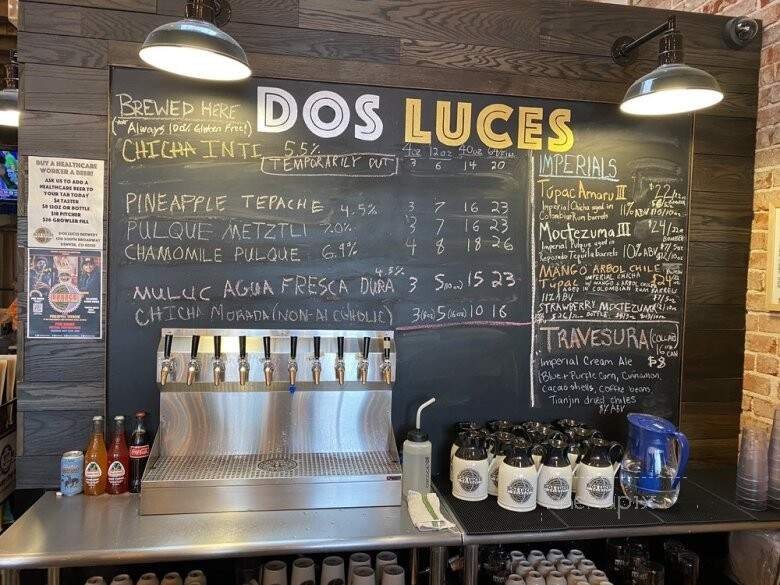 DOS LUCES
BREWED HERE
(** Always 100% Gluten Free!)
CHICHA INTI 5.5%
TEMPORARILY OUT
4oz 12oz 40oz 64oz
3 6 14 20
PINEAPPLE TEPACHE 4.5% 3 7 16 23
PULQUE METZTLI 7.0% 3 7 16 23
CHAMOMILE PULQUE 6.9% 4 8 18 26
MULUC AGUA FRESCA DURA 4.5% 3 5(10oz) 15 23
CHICHA MORADA (NON-ALCOHOLIC) 3(8oz) 5(16oz) 10 16
IMPERIALS
Tupac Amaru III $22/
Imperial Chicha aged in
Colombian Rum barrels 11% ABV
Moctezuma III $24/22oz
BOMBER
Imperial Pulque aged in
Reposado Tequila barrels 10% ABV
MANGO ARBOL CHILE
TUPAC IMPERIAL CHICHA
W/ MANGO + ARBOL CHILE
AGED IN COLOMBIAN RUM BARRELS
11% ABV
STRAWBERRY MOCTEZUMA
TRAVESURA (COLLAB)
16oz CAN
$8
Imperial Cream Ale
Blue + Purple Corn, Cinnamon,
cacao shells, coffee beans,
Tianjin dried chiles
9% ABV
BUY A HEALTHCARE
WORKER A BEER!
ASK US TO ADD A
HEALTHCARE BEER TO
YOUR TAB TODAY
$4 TASTER
$8 12OZ OR BOTTLE
$18 PITCHER
$26 GROWLER FILL
DOS LUCES BREWERY
1236 SOUTH BROADWAY
DENVER, CO 80210
Coca-Cola
DOS LUCES
DOS LUCES
DOS LUCES
DOS LUCES
sirved